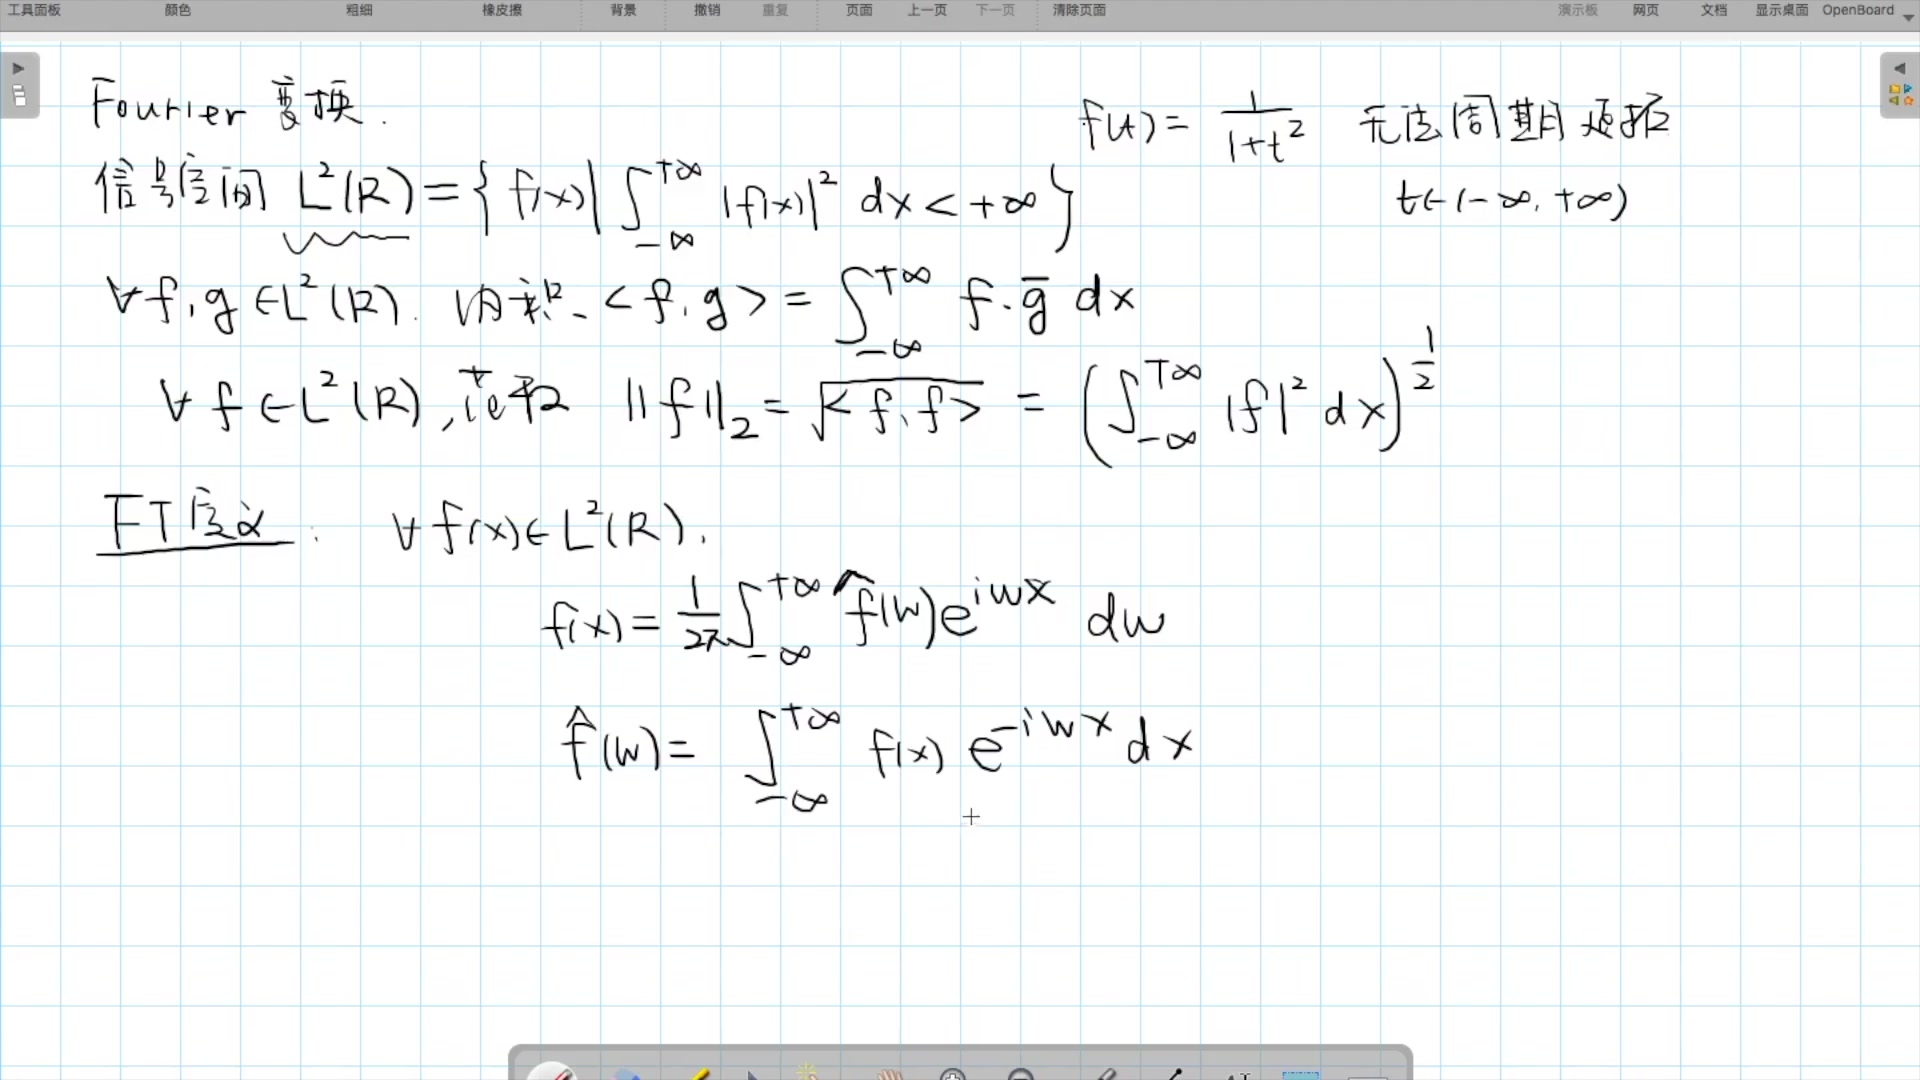 工具面板 颜色 粗细 橡皮擦 背景 撤销 重复 页面 上一页 下一页 清除页面 演示板 网页 文档 显示桌面 OpenBoard
Fourier 变换.
f(t) = 1/(1+t²) 无法周期延拓
t∈(-∞, +∞)
信号空间 L²(R) = { f(x) | ∫_{-∞}^{+∞} |f(x)|² dx < +∞ }
∀ f, g ∈ L²(R). 内积. <f, g> = ∫_{-∞}^{+∞} f·ḡ dx
∀ f ∈ L²(R), ‖f‖₂ = √<f, f> = (∫_{-∞}^{+∞} |f|² dx)^{1/2}
FT定义: ∀ f(x) ∈ L²(R).
f(x) = 1/2π ∫_{-∞}^{+∞} f̂(w) e^{iwx} dw
f̂(w) = ∫_{-∞}^{+∞} f(x) e^{-iwx} dx